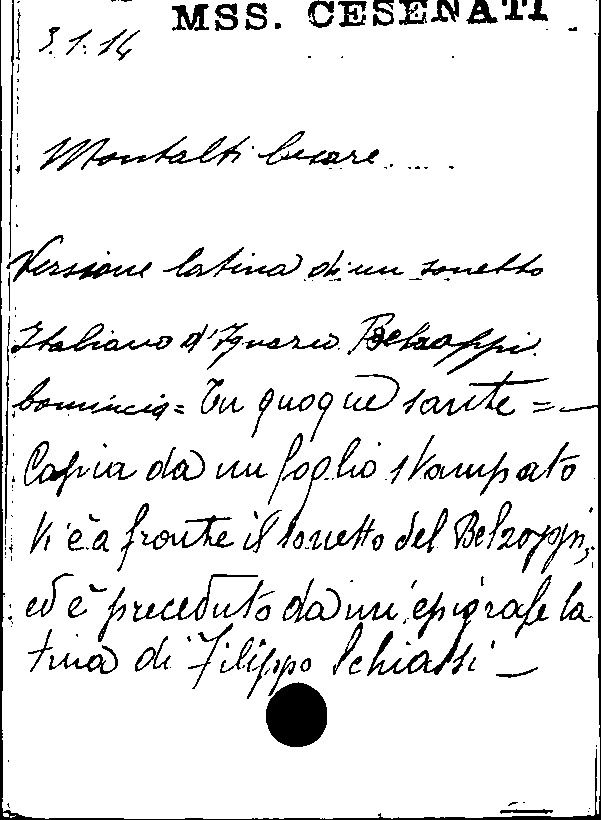 MSS. CESENATI
3.1.14
Montalti Cesare
Versione latina di un sonetto
Italiano d'Ignazio Belzoppi.
Comincia = Tu quoque sante =
Copia da un foglio stampato
V'è a fronte il sonetto del Belzoppi,
ed è preceduto da un'epigrafe la
tina di Filippo Schiassi